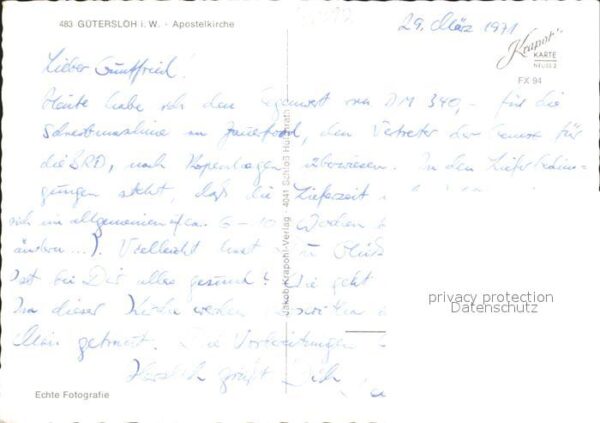 483 GÜTERSLOH i. W. - Apostelkirche
29. März 1971
Krapohl
KARTE
NEUSS 2
FX 94
Lieber Guntfried!
Heute habe ich den Gegenwert von DM 340,- für die
Schreibmaschine an, den Vertreter der für
die BRD, nach Kopenhagen überwiesen. In den Lieferbedin-
gungen steht, daß die Lieferzeit
sich im allgemeinen 6-10 Wochen
ändern...). Vielleicht hast Du Glück
Ist bei Dir alles gesund? Wie geht
In dieser Kirche werden
Mai getraut. Die Vorbereitungen
Herzlich grüßt Dich
Jakob Krapohl-Verlag - 4041 Schloß Hülchrath
privacy protection
Datenschutz
Echte Fotografie